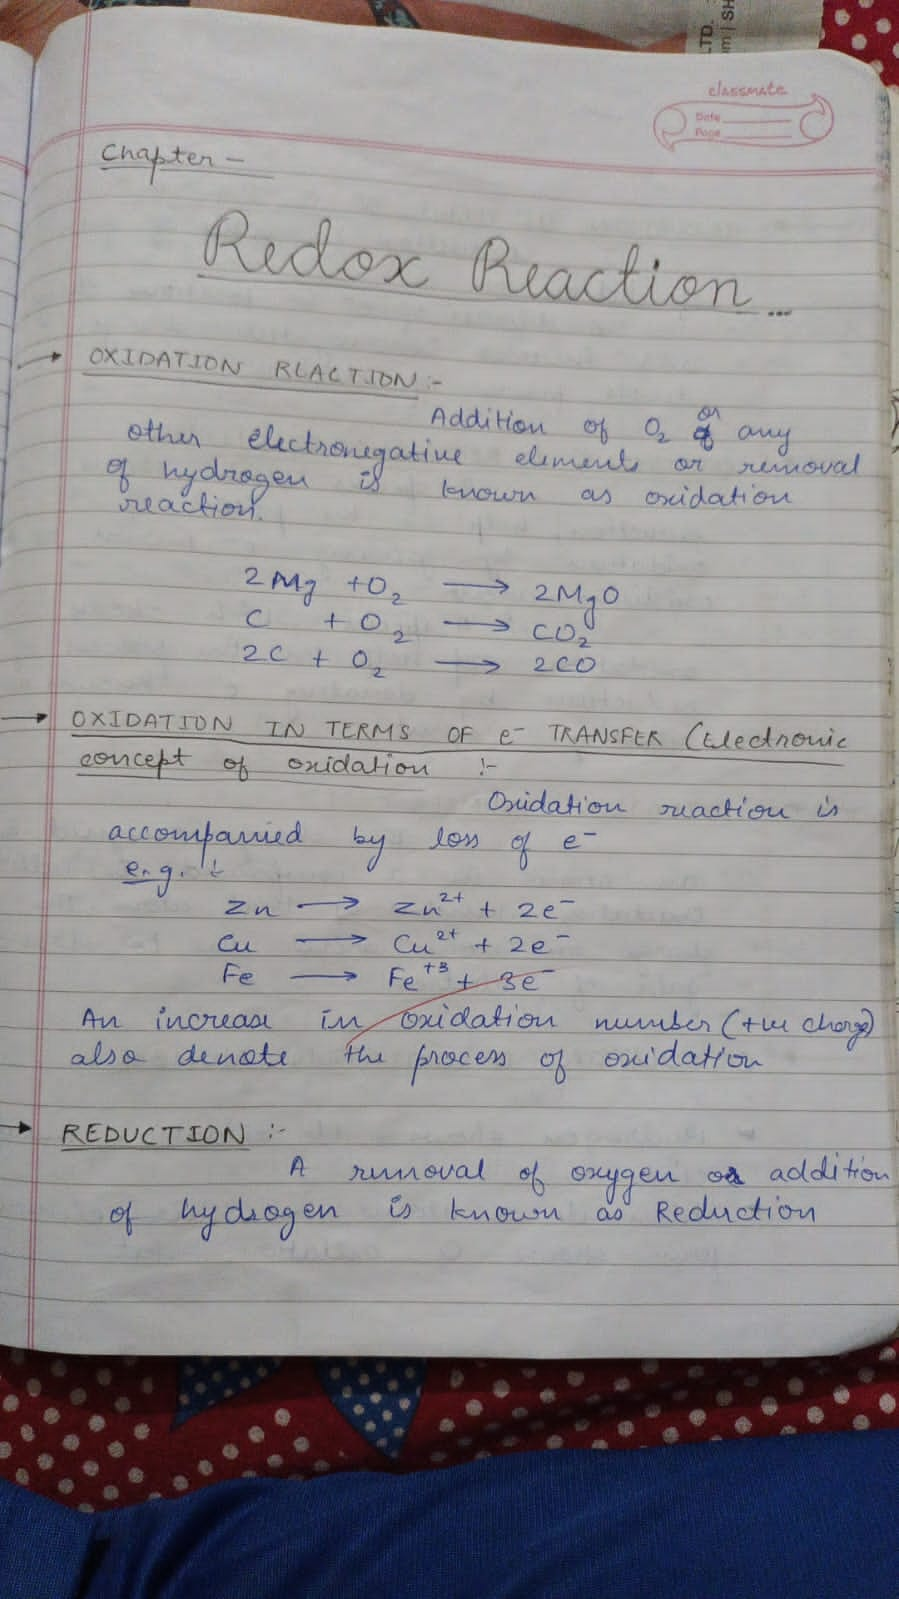 LTD.
um | SH
classmate
Date
Page
Chapter -
Redox Reaction...
→ OXIDATION REACTION :-
Addition of O₂ or any
other electronegative elements or removal
of hydrogen is known as oxidation
reaction.
2Mg + O₂ → 2MgO
C + O₂ → CO₂
2C + O₂ → 2CO
→ OXIDATION IN TERMS OF e⁻ TRANSFER (Electronic
concept of oxidation :-
Oxidation reaction is
accompanied by loss of e⁻
e.g. :
Zn → Zn²⁺ + 2e⁻
Cu → Cu²⁺ + 2e⁻
Fe → Fe⁺³ + 3e⁻
An increase in oxidation number (+ve charge)
also denote the process of oxidation
→ REDUCTION :-
A removal of oxygen or addition
of hydrogen is known as Reduction